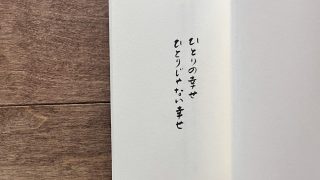 ひとりの幸せ
ひとりじゃない幸せ